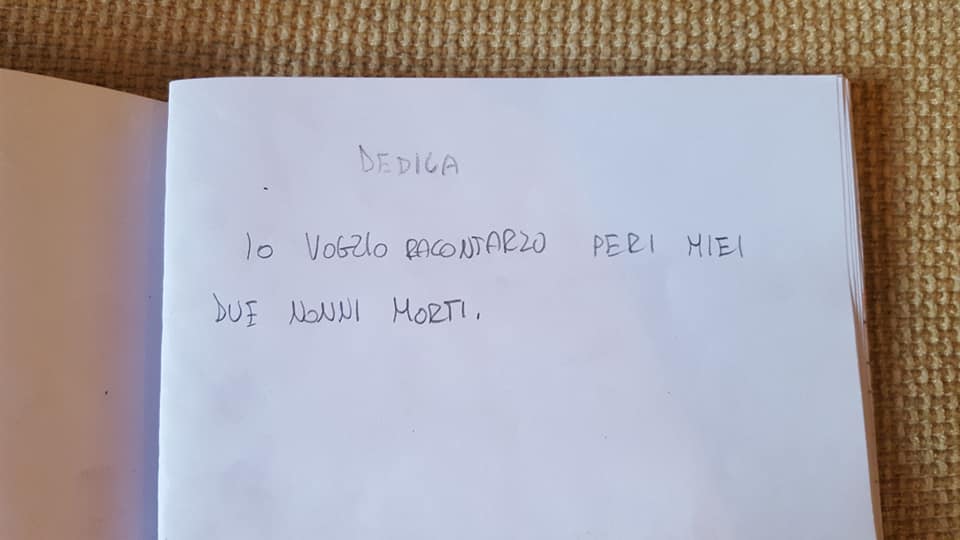 DEDICA
IO VOGLIO RACONTARLO PER I MIEI
DUE NONNI MORTI.